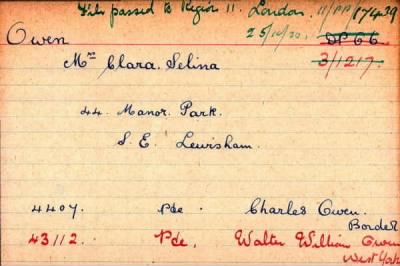 File passed to Region 11. London. 11/PP/17439
25/10/20.
Owen DP 66
3/1217.
Mrs Clara. Selina
44. Manor. Park.
S. E. Lewisham.
4407. Pde. Charles Owen.
Border
43112. Pde. Walter William Owen
West York